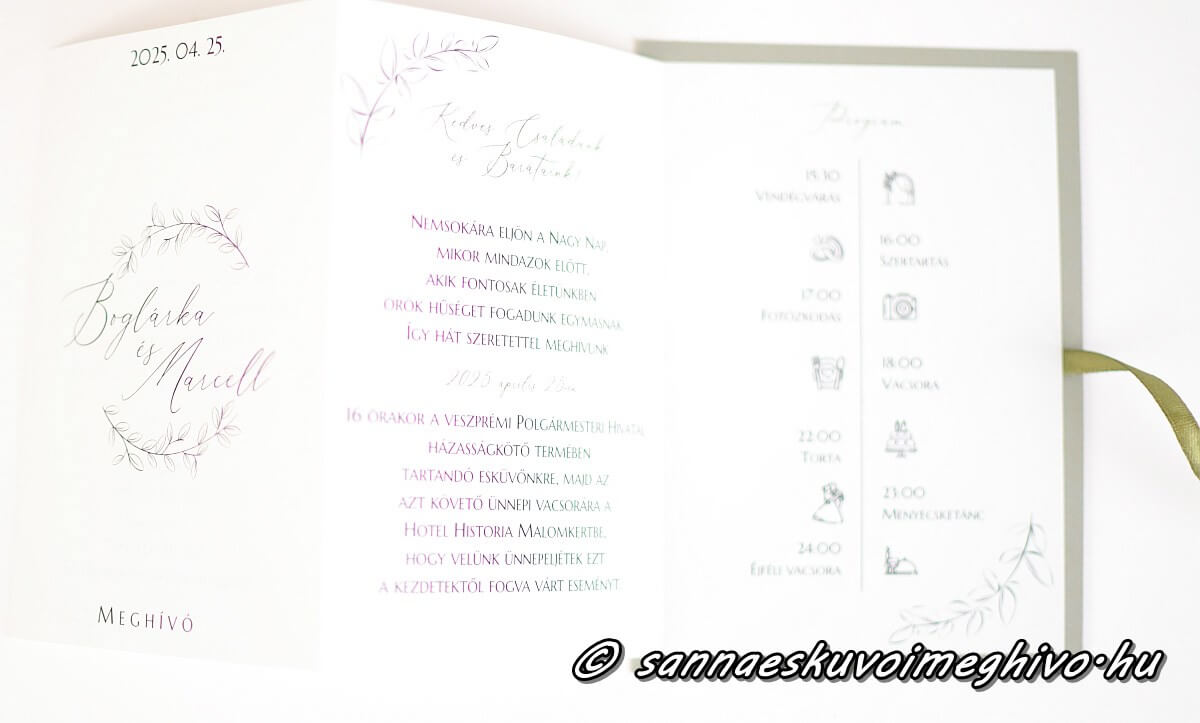 2025. 04. 25.
Boglárka
és
Marcell
MEGHÍVÓ
Kedves Családunk
és Barátaink!
NEMSOKÁRA ELJÖN A NAGY NAP,
MIKOR MINDAZOK ELŐTT,
AKIK FONTOSAK ÉLETÜNKBEN
ÖRÖK HŰSÉGET FOGADUNK EGYMÁSNAK
ÍGY HÁT SZERETETTEL MEGHÍVUNK
2025 április 25-én
16 ÓRAKOR A VESZPRÉMI POLGÁRMESTERI HIVATAL
HÁZASSÁGKÖTŐ TERMÉBEN
TARTANDÓ ESKÜVŐNKRE, MAJD AZ
AZT KÖVETŐ ÜNNEPI VACSORÁRA A
HOTEL HISTORIA MALOMKERTBE,
HOGY VELÜNK ÜNNEPELJÉTEK EZT
A KEZDETEKTŐL FOGVA VÁRT ESEMÉNYT.
Program
15:30
VENDÉGVÁRÁS
16:00
SZERTARTÁS
17:00
FOTÓZKODÁS
18:00
VACSORA
22:00
TORTA
23:00
MENYECSKETÁNC
24:00
ÉJFÉLI VACSORA
© sannaeskuvoimeghivo.hu